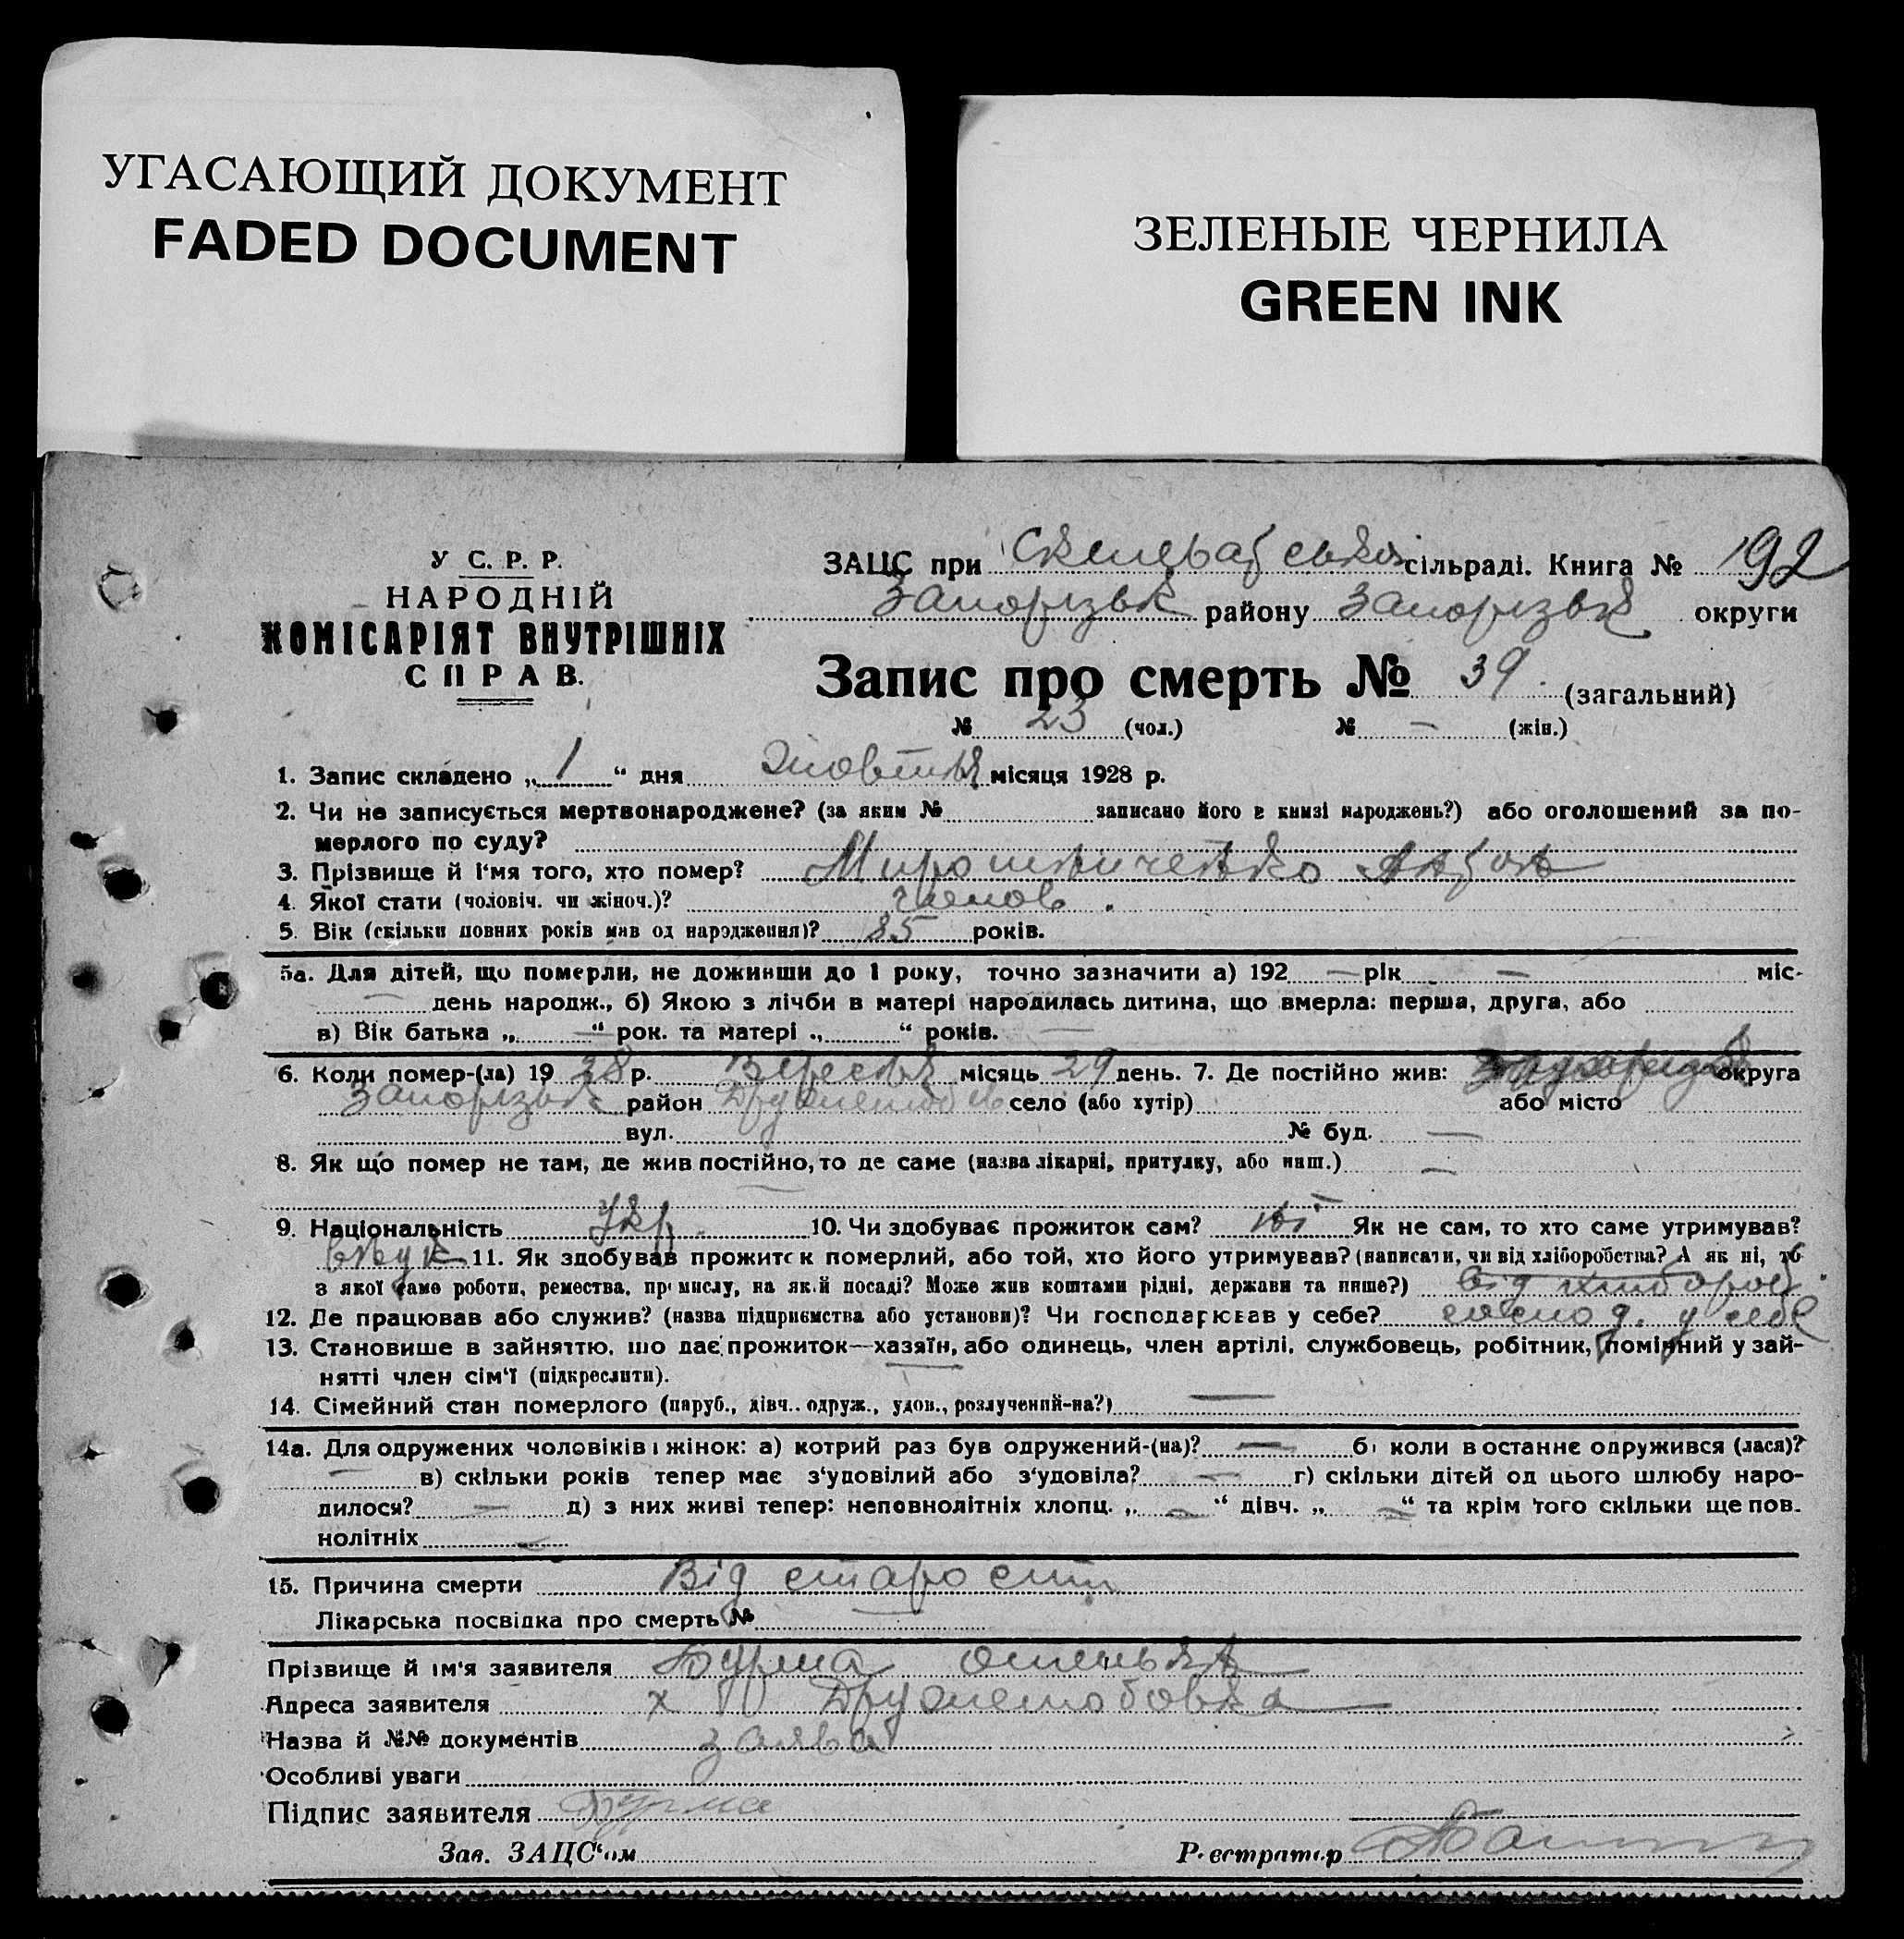 УГАСАЮЩИЙ ДОКУМЕНТ
FADED DOCUMENT
ЗЕЛЕНЫЕ ЧЕРНИЛА
GREEN INK
У С. Р. Р.
НАРОДНІЙ
КОМІСАРІЯТ ВНУТРІШНІХ
СПРАВ.
ЗАЦС при сільраді. Книга № 192
Запорізьк району Запорізьк округи
Запис про смерть № 39. (загальний)
№ 23 (чол.) № — (жін.)
1. Запис складено „ 1 “ дня Жовтня місяця 1928 р.
2. Чи не записується мертвонароджене? (за яким № записано його в книзі народжень?) або оголошений за по-
мерлого по суду?
3. Прізвище й ім‘я того, хто помер? Мирошниченко Антон
4. Якої стати (чоловіч. чи жіноч.)? чолов.
5. Вік (скільки повних років мав од народження)? 85 років.
5а. Для дітей, що померли, не доживши до 1 року, точно зазначити а) 192 — рік — міс-
— день народж., б) Якою з лічби в матері народилась дитина, що вмерла: перша, друга, або
в) Вік батька „ — “ рок. та матері „ “ років. —
6. Коли помер-(ла) 19 28 р. Вересня місяць 29 день. 7. Де постійно жив: округа
Запорізьк район село (або хутір) або місто
вул. № буд. —
8. Як що помер не там, де жив постійно, то де саме (назва лікарні, притулку, або инш.) —
9. Національність Укр. 10. Чи здобуває прожиток сам? ні Як не сам, то хто саме утримував?
внук 11. Як здобував прожиток померлий, або той, хто його утримував? (написати, чи від хліборобства? А як ні, то
з якої саме роботи, ремества, промислу, на якій посаді? Може жив коштами рідні, держави та инше?) від хлібороб.
12. Де працював або служив? (назва підприємства або установи)? Чи господарював у себе? господ. у себе
13. Становище в зайняттю, що дає прожиток—хазяїн, або одинець, член артілі, службовець, робітник, помічний у зай-
нятті член сім‘ї (підкреслити).
14. Сімейний стан померлого (паруб., дівч., одруж., удов., розлучений-на?) —
14а. Для одружених чоловіків і жінок: а) котрий раз був одружений-(на)? — б) коли востаннє одружився (лася)?
— в) скільки років тепер має з‘удовілий або з‘удовіла? — г) скільки дітей од цього шлюбу наро-
дилося? — д) з них живі тепер: неповнолітніх хлопц. „ — “ дівч. „ — “ та крім того скільки ще пов-
нолітніх —
15. Причина смерти Від старости
Лікарська посвідка про смерть № —
Прізвище й ім‘я заявителя Бурма
Адреса заявителя х Дружелюбовка
Назва й №№ документів заява
Особливі уваги
Підпис заявителя Бурма
Зав. ЗАЦС‘ом Реєстратор